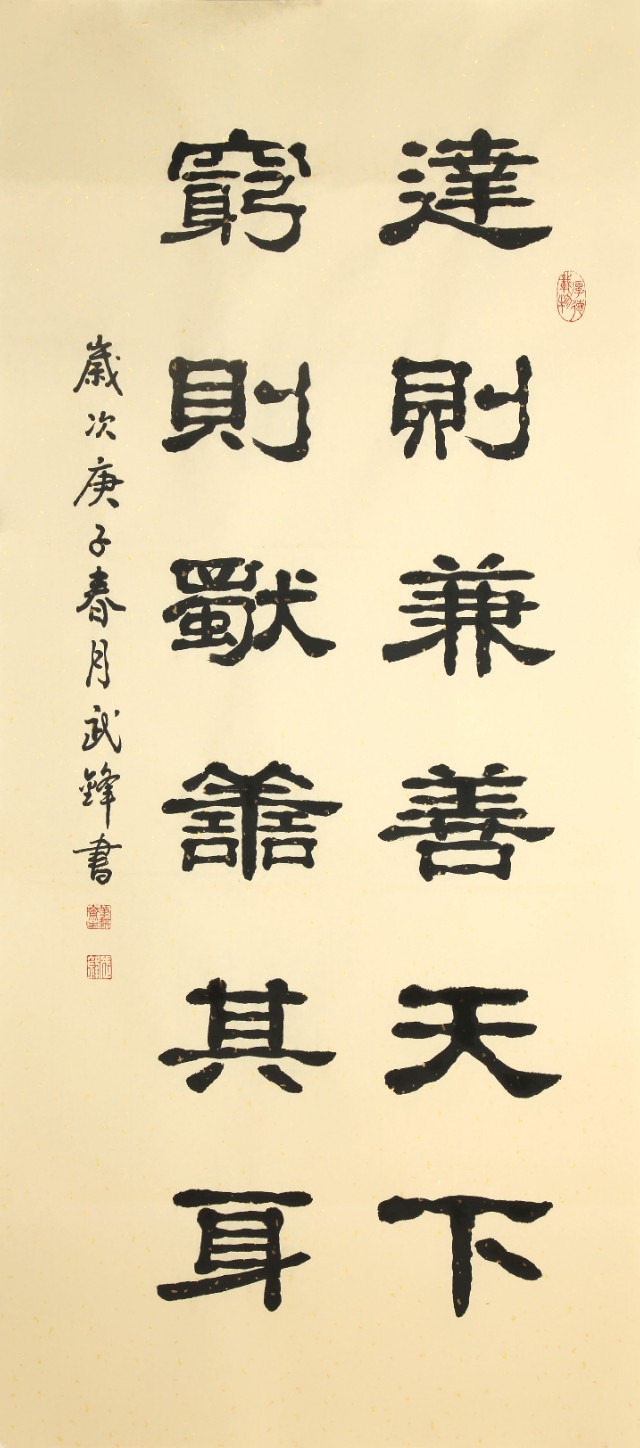 厚德載物
達則兼善天下
窮則獨善其身
歲次庚子春月武鋒書